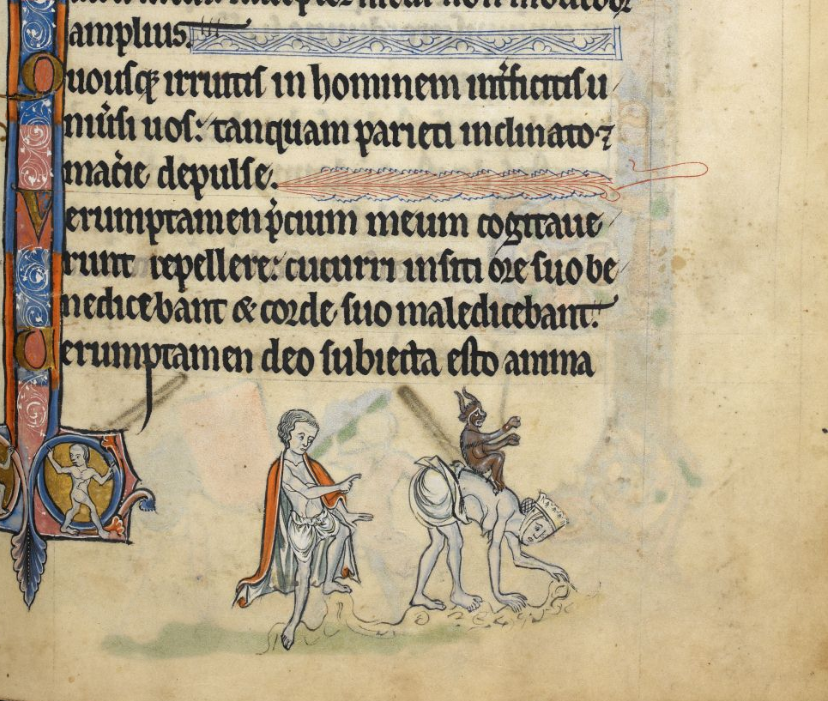 amplius.
Quousqꝫ irruitis in hominem int̾ficitis u
niu̾si uos: tanquam parieti inclinato ⁊
mac̾ie depulse.
Verumptamen p̄cium meum cogitaue
runt repellere: cucurri in siti ore suo be
nedicebant & corde suo maledicebant.
Verumptamen deo subiecta esto anima